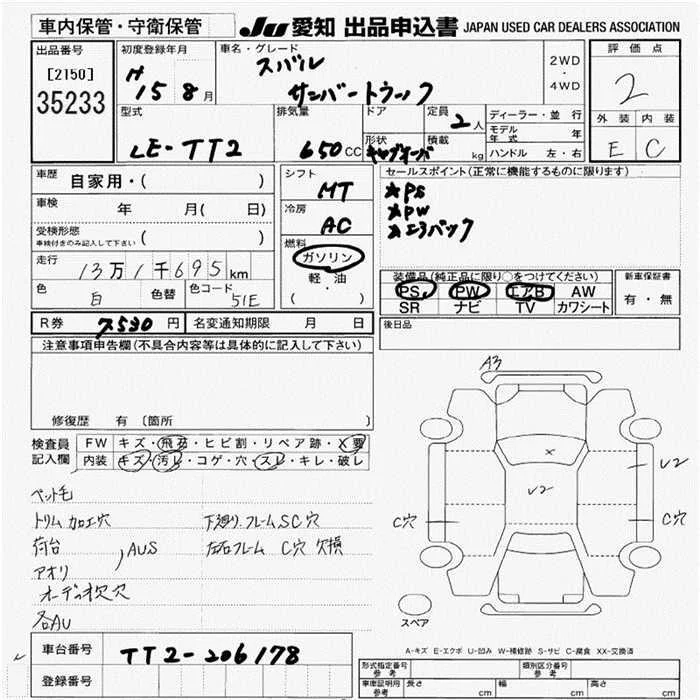 車内保管・守衛保管 JU 愛知 出品申込書 JAPAN USED CAR DEALERS ASSOCIATION
出品番号 初度登録年月 車名・グレード 2WD・4WD 評価点
[2150] H15 8月 スバル 2
35233 サンバートラック 外装 内装
型式 排気量 ドア 定員 2人 ディーラー・並行 E C
LE-TT2 650CC 形状 キャブオーバ 積載 kg モデル年式 年
ハンドル 左・右
車歴 自家用・( ) シフト MT セールスポイント(正常に機能するものに限ります)
車検 年 月( 日) 冷房 AC ★PS
受検形態 ( ) ★PW
車検付きのみ記入して下さい 燃料 ガソリン ★エアバック
走行 13万1千695km 軽・油
色 白 色替 色コード 51E ( )
装備品(純正品に限り○をつけてください) 新車保証書
PS PW エアB AW 有・無
SR ナビ TV カワシート
R券 7530円 名変通知期限 月 日 後日品
注意事項申告欄(不具合内容等は具体的に記入して下さい)
修復歴 有 〔箇所 〕
検査員 FW キズ・飛石・ヒビ割・リペア跡・X要
記入欄 内装 キズ・汚レ・コゲ・穴・スレ・キレ・破レ
ペット毛
トリム加工穴 下廻り、フレームSC穴
荷台 , AUS 左右フレーム C穴 欠損
アオリ
オーディオ欠穴
各AU
A3
X
U2
U2
C穴
C穴
スペア
A-キズ E-エクボ U-凹み W-補修跡 S-サビ C-腐食 XX-交換済
車台番号 TT2-206178
登録番号
形式指定番号 参考 類別区分番号 参考
車庫証明用 参考 長さ cm 幅 cm 高さ cm